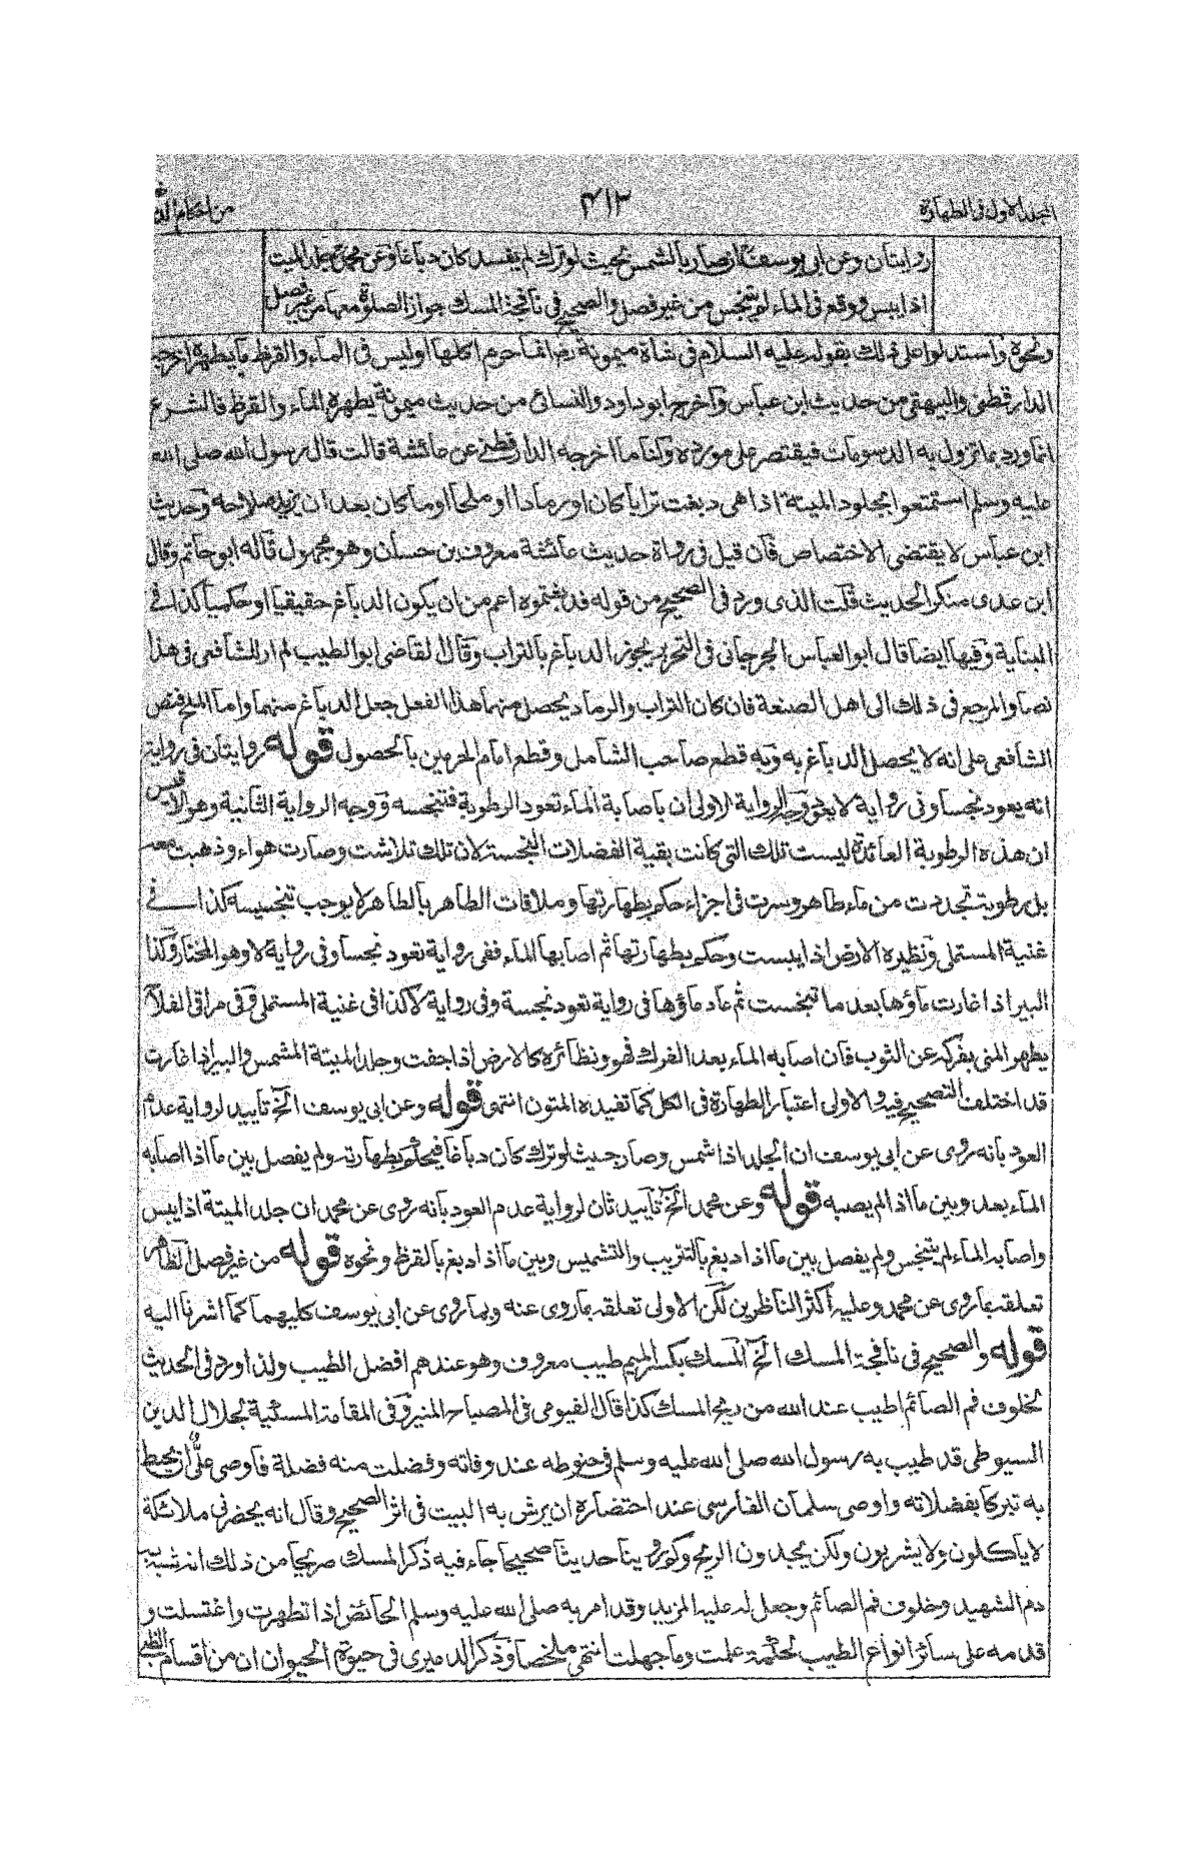 المجلد الاول فى الطهارة
۴۱۲
من احكام
روايتان وعن ابى يوسف ان صار بالشمس بحيث لو ترك لم يفسد كان دباغا وعن محمد جلد الميت
اذا يبس ووقع فى الماء لم يتنجس من غير فصل والصحيح فى نافجة المسك جواز الصلوة معها من غير فصل
ونحوه واستدلوا على ذلك بقوله عليه السلام فى شاة ميمونة رضـ انما حرم اكلها اوليس فى الماء والقرظ ما يطهره اخرجه
الدارقطنى والبيهقى من حديث ابن عباس واخرج ابو داود والنسائى من حديث ميمونة يطهره الماء والقرظ فالشرع
انما ورد بما تزول به الدسومات فيقتصر على مورده ولنا ما اخرجه الدارقطنى عن عائشة قالت قال رسول الله صلى الله
عليه وسلم استمتعوا بجلود الميتة اذا هى دبغت ترابا كان او رمادا او ملحا او ما كان بعد ان يزيد صلاحه وحديث
ابن عباس لا يقتضى الاختصاص فان قيل فى رواة حديث عائشة معروف بن حسان وهو مجهول قاله ابو حاتم وقال
ابن عدى منكر الحديث قلت الذى ورد فى الصحيح من قوله فدبغتموه اعم من ان يكون الدباغ حقيقيا او حكميا كذا فى
البناية وفيها ايضا قال ابو العباس الجرجانى فى التحرير يجوز الدباغ بالتراب وقال القاضى ابو الطيب لم ار للشافعى فى هذا
نصا والمرجع فى ذلك الى اهل الصنعة فان كان التراب والرماد يحصل منهما هذا الفعل جعل الدباغ منهما واما الملح فنص
الشافعى على انه لا يحصل الدباغ به وبه قطع صاحب الشامل وقطع امام الحرمين بالحصول قوله روايتان فى رواية
انه يعود نجسا وفى رواية لا يعود وجه الرواية الاولى ان باصابة الماء تعود الرطوبة فتنجسه ووجه الرواية الثانية وهو الاقيس
ان هذه الرطوبة العائدة ليست تلك التى كانت بقية الفضلات النجسة لان تلك تلاشت وصارت هواء وذهبت
بل رطوبة تجددت من ماء طاهر وسرت فى اجزاء حكم بطهارتها وملاقات الطاهر بالطاهر لا يوجب تنجيسه كذا فى
غنية المستملى ونظيره الارض اذا يبست وحكم بطهارتها ثم اصابها الماء ففى رواية تعود نجسا وفى رواية لا وهو المختار وكذا
البير اذا غارت ماؤها بعد ما تنجست ثم عاد ماؤها فى رواية تعود نجسة وفى رواية لا كذا فى غنية المستملى وفى مراقى الفلاح
يطهر المنى بفركه عن الثوب فان اصابه الماء بعد الفرك فهو ونظائره كالارض اذا جفت وجلد الميتة المشمس والبير اذا غارت
قد اختلف التصحيح فيه والاولى اعتبار الطهارة فى الكل كما تفيده المتون انتهى قوله وعن ابى يوسف الخ تاييد لرواية عدم
العود بانه روى عن ابى يوسف ان الجلد اذا شمس وصار بحيث لو ترك كان دباغا فيحكم بطهارته ولم يفصل بين ما اذا اصابه
الماء بعد وبين ما اذا لم يصبه قوله وعن محمد الخ تاييد ثان لرواية عدم العود بانه روى عن محمد ان جلد الميتة اذا يبس
واصابه الماء لم يتنجس ولم يفصل بين ما اذا دبغ بالتتريب والتشميس وبين ما اذا دبغ بالقرظ ونحوه قوله من غير فصل الظاهر
تعلقه بما روى عن محمد وعليه اكثر الناظرين لكن الاولى تعلقه بما روى عنه وبما روى عن ابى يوسف كليهما كما اشرنا اليه
قوله والصحيح فى نافجة المسك الخ المسك بكسر الميم طيب معروف وهو عندهم افضل الطيب ولذا ورد فى الحديث
لخلوف فم الصائم اطيب عند الله من ريح المسك كذا قال الفيومى فى المصباح المنير وفى المقامة المسكية لجلال الدين
السيوطى قد طيب به رسول الله صلى الله عليه وسلم فى حنوطه عند وفاته وفضلت منه فضلة فاوصى على ان يحنط
به تبركا بفضلاته واوصى سلمان الفارسى عند احتضاره ان يرش به البيت فى اثر الصحيح وقال انه يحضرنى ملائكة
لا ياكلون ولا يشربون ولكن يجدون الريح وكم روينا حديثا صحيحا جاء فيه ذكر المسك صريحا من ذلك انه شبه به
دم الشهيد وخلوف فم الصائم وجعل له عليه المزيد وقد امر به صلى الله عليه وسلم الحائض اذا تطهرت واغتسلت و
قدمه على سائر انواع الطيب لحكمة علمت وما جهلت انتهى ملخصا وذكر الدميرى فى حيوة الحيوان ان من اقسام الظبى